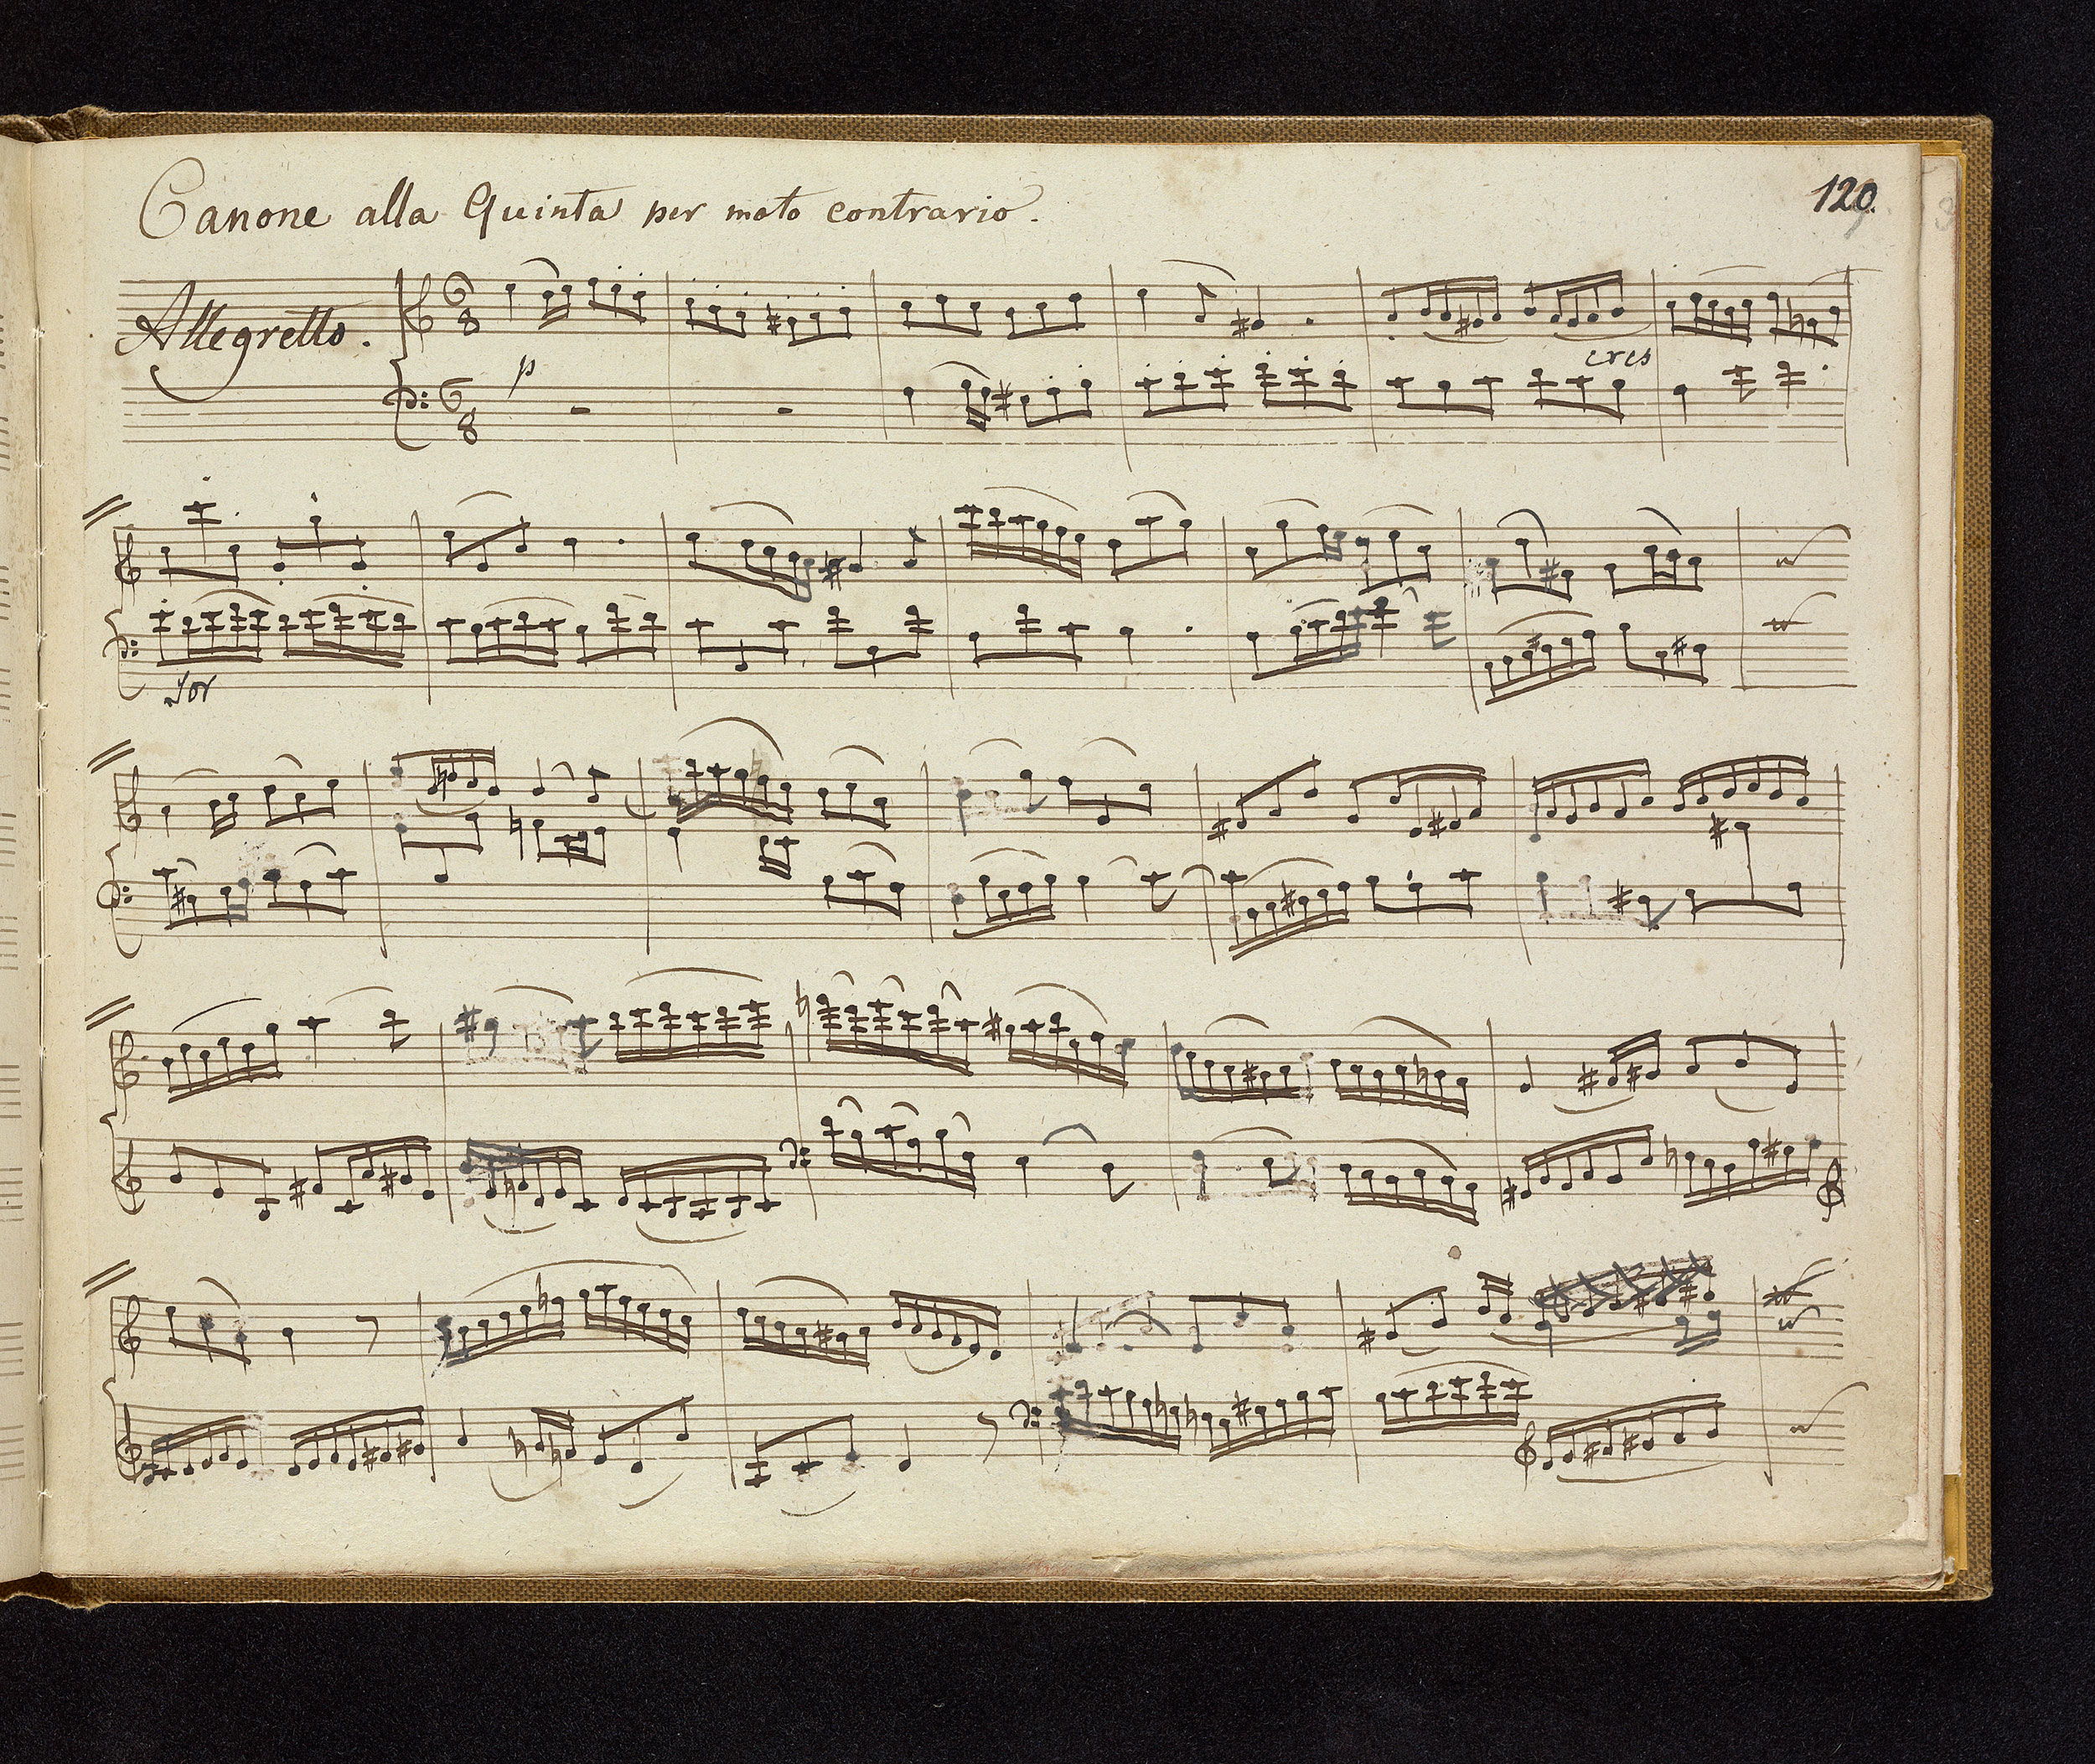 Canone alla Quinta per moto contrario.
120.
Allegretto.
6 8
p
cres
6 8
for